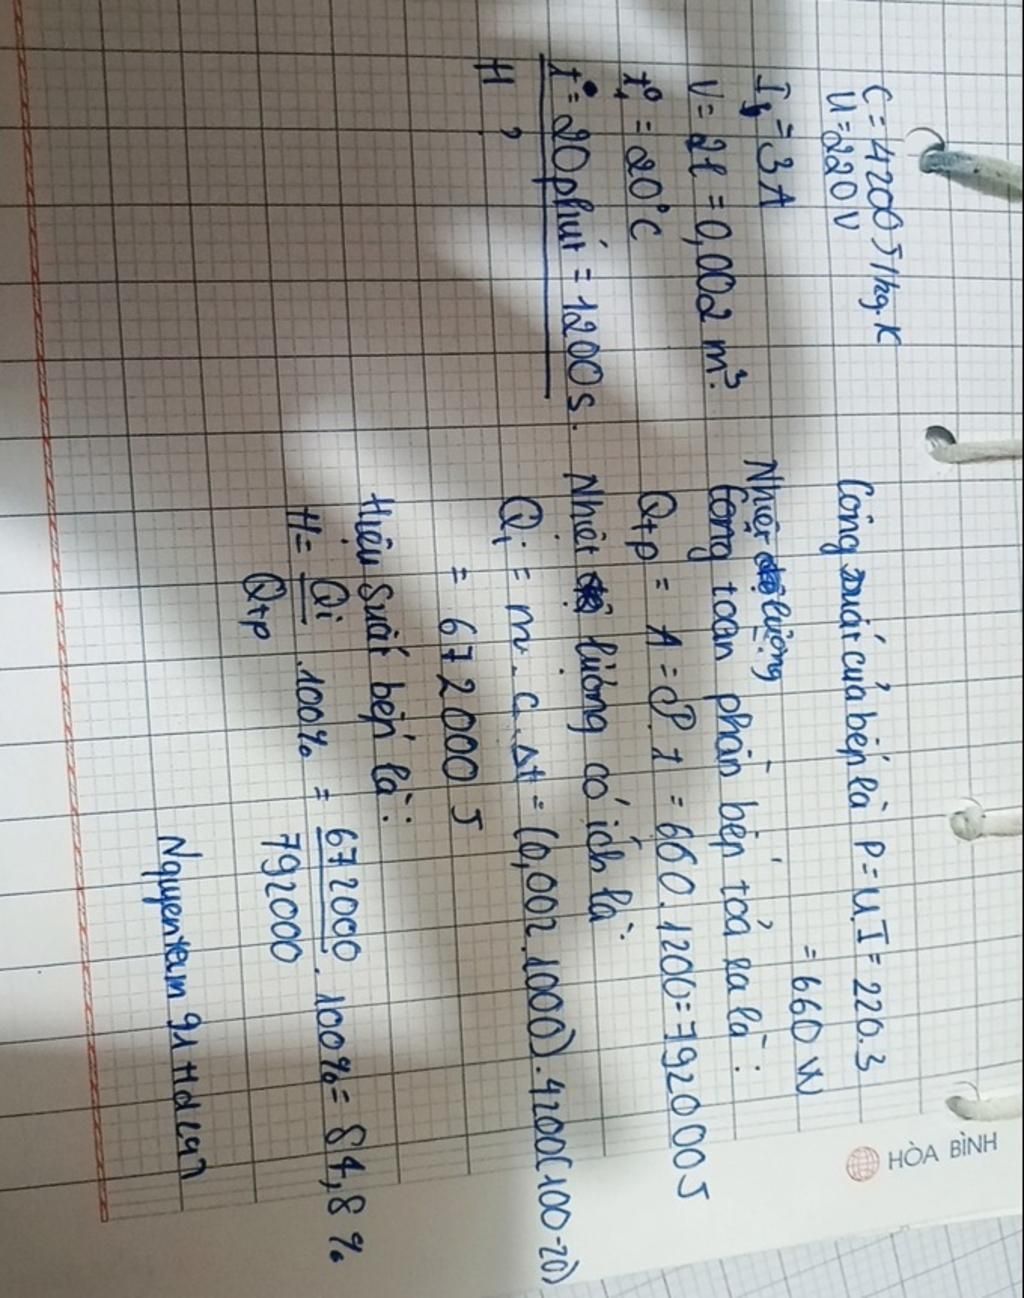 C = 4200 J/kg.K
U = 220 V
I = 3 A
V = 2l = 0,002 m³.
t₁° = 20°C
t = 20 phút = 1200 s.
H ?
Công suất của bếp là P = UI = 220.3
= 660 W
Nhiệt lượng
toàn phần bếp toả ra là :
Qtp = A = P.t = 660.1200 = 792000 J
Nhiệt lượng có ích là:
Qi = m.c.Δt = (0,002.1000).4200(100-20)
= 672000 J
Hiệu suất bếp là :
H = Qi/Qtp .100% = 672000/792000 .100% = 84,8 %
HÒA BÌNH